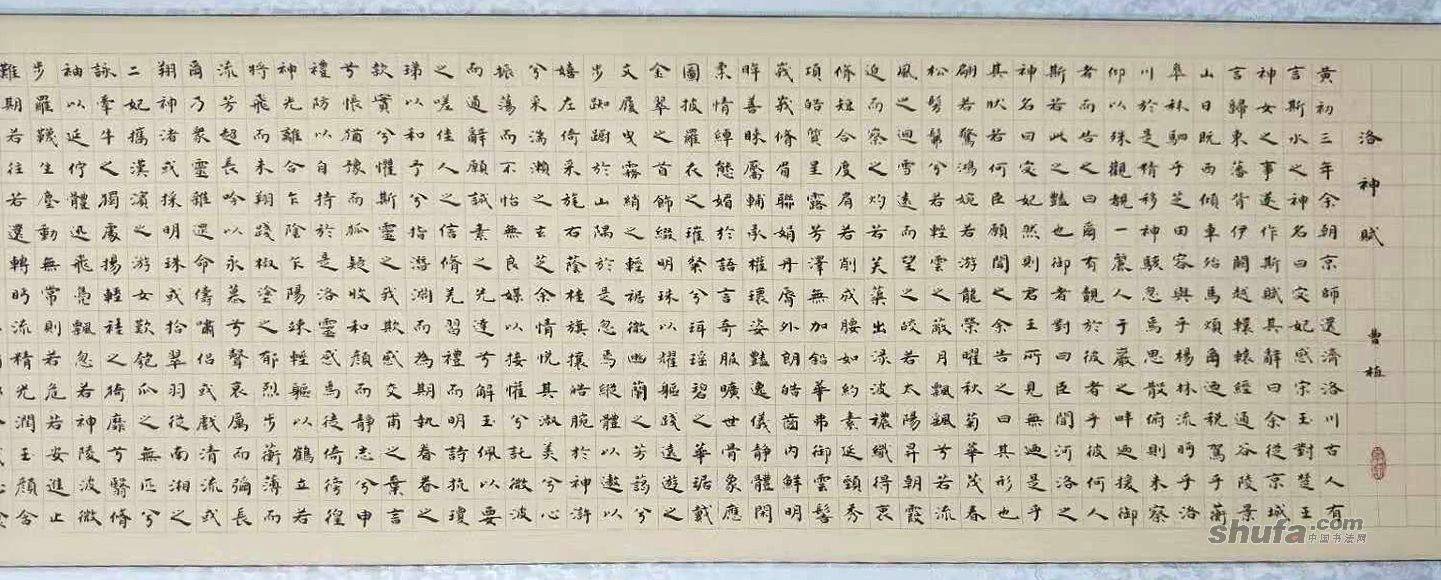 洛神賦 曹植
黄初三年余朝京師還濟洛川古人有
言斯水之神名曰宓妃感宗玉對楚王
神女之事遂作斯賦其辭曰余從京城
言歸東藩背伊闕越轘轅經通谷陵景
山日既西傾車殆馬煩爾迺稅駕乎蘅
皋秣駟乎芝田容與乎楊林流眄乎洛
川於是精移神駭忽焉思散俯則未察
仰以殊觀覩一麗人于巖之畔迺援御
者而告之曰爾有覿於彼者乎彼何人
斯若此之豔也御者對曰臣聞河洛之
神名曰宓妃然則君王所見無迺是也
其狀若何臣願聞之余告之曰其形也
翩若驚鴻婉若游龍榮曜秋菊華茂春
松髣髴兮若輕雲之蔽月飄颻兮若流
風之迴雪遠而望之皎若太陽昇朝霞
迫而察之灼若芙蕖出淥波襛纖得衷
脩短合度肩若削成腰如約素延頸秀
項皓質呈露芳澤無加鉛華弗御雲髻
峩峩脩眉聯娟丹脣外朗皓齒內鮮明
眸善睞靨輔承權環姿豔逸儀靜體閑
柔情綽態媚於語言奇服曠世骨象應
圖披羅衣之璀粲兮珥瑤碧之華琚戴
金翠之首飾綴明珠以耀軀踐遠遊之
文履曳霧綃之輕裾微幽蘭之芳藹兮
步踟躕於山隅於是忽焉縱體以遨以
嬉左倚采旄右蔭桂旗攘皓腕於神滸
兮采湍瀨之玄芝余情悅其淑美兮心
振蕩而不怡無良媒以接懽兮託微波
而通辭願誠素之先達兮解玉佩以要
之嗟佳人之信脩羌習禮而明詩抗瓊
珶以和予兮指潛淵而為期執眷眷之
款實兮懼斯靈之我欺感交甫之棄言
兮悵猶豫而狐疑收和顏而靜志兮申
禮防以自持於是洛靈感焉徙倚徬徨
神光離合乍陰乍陽竦輕軀以鶴立若
將飛而未翔踐椒塗之郁烈步蘅薄而
流芳超長吟以永慕兮聲哀厲而彌長
爾乃眾靈雜遝命儔嘯侶或戲清流或
翔神渚或採明珠或拾翠羽從南湘之
二妃攜漢濱之游女歎匏瓜之無匹兮
詠牽牛之獨處揚輕袿之猗靡兮翳脩
袖以延佇體迅飛鳧飄忽若神陵波微
步羅韈生塵動無常則若危若安進止
難期若往若還轉眄流精光潤玉顏含
shufa.com
中国书法网